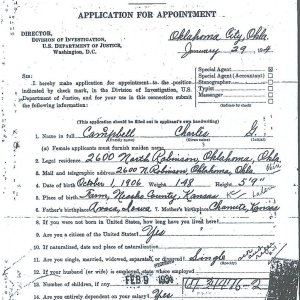 APPLICATION FOR APPOINTMENT
Oklahoma City, Okla.
DIRECTOR,
DIVISION OF INVESTIGATION,
U.S. DEPARTMENT OF JUSTICE,
Washington, D.C.
January 29
SIR:
I hereby make application for appointment to the position
indicated by check mark, in the Division of Investigation, U.S.
Department of Justice, and for your use in this connection submit
the following information:
Special Agent
Special Agent (Accountant)
Stenographer
Typist
Messenger
(This application should be filled out in applicant's own handwriting)
1. Name in full Campbell Charles G.
(Family name) (Given name)
(a) Female applicants must furnish maiden name
2. Legal residence 2600 North Robinson, Oklahoma, Okla.
3. Mail and telegraphic address 2600 N. Robinson Oklahoma, Okla.
4. Date of birth October 1, 1906 Weight 148 Height 5'9"
5. Place of birth Farm, Neosho County, Kansas
6. Father's birthplace Iowa Mother's birthplace Chanute, Kansas
7. If you were not born in United States, how long have you lived here?
8. Are you a citizen of the United States? Yes
9. If naturalized, date and place of naturalization
10. Are you single, married, widowed, separated, or divorced? Single
12. If your husband (or wife) is employed, state where employed
FEB 9 1934
13. Number of children, if any
Are you entirely dependent on your salary? Yes